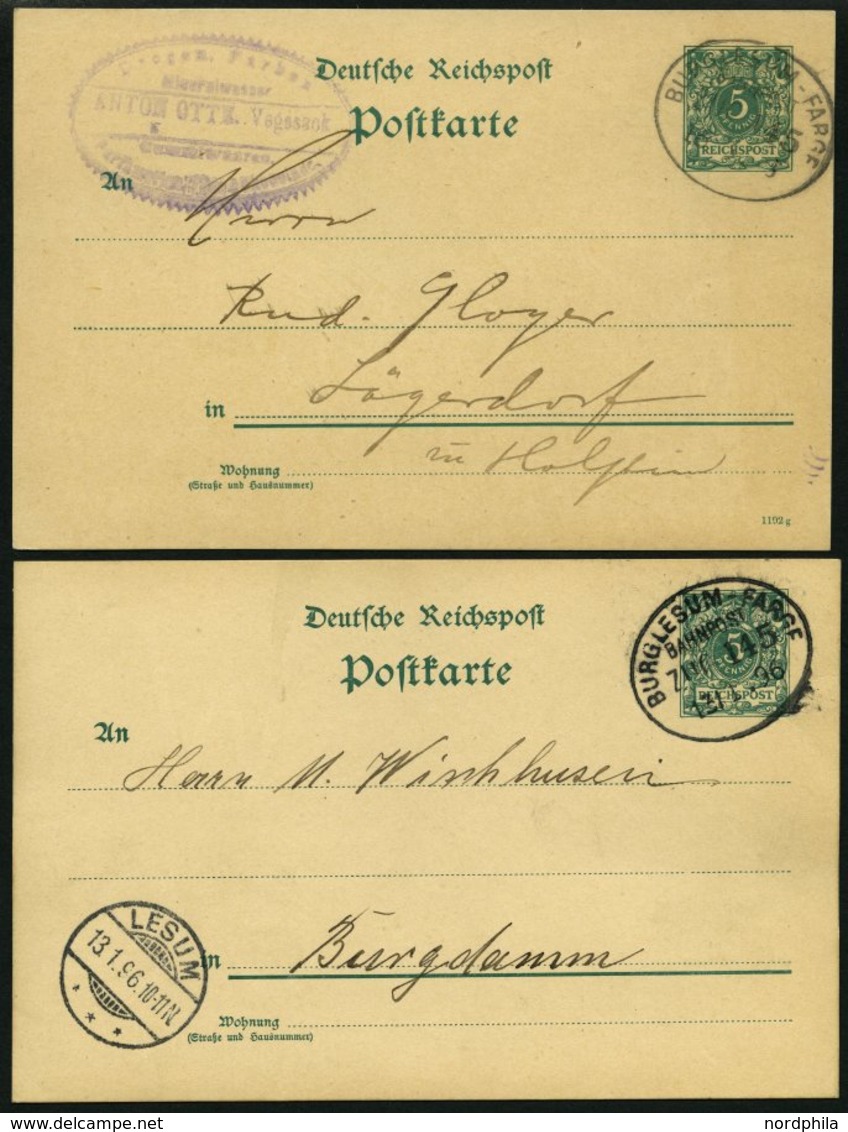 Drogen, Farben
Mineralwasser
ANTON OTTE. Vegesack
Gummiwaaren,
Deutsche Reichspost
Postkarte
5
PFENNIG
REICHSPOST
BURGLESUM-FARGE
An
Herrn
Rud. Gloyer
in Lägerdorf
Wohnung in Holstein
(Straße und Hausnummer)
1192 g
Deutsche Reichspost
Postkarte
5
PFENNIG
REICHSPOST
BURGLESUM-FARGE
BAHNPOST
ZUG 145
13/1 96
An
Herrn M. Wischhusen
in Burgdamm
LESUM
13.1.96.10-11N
Wohnung
(Straße und Hausnummer)
nordphila